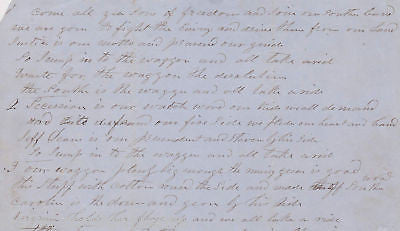 Come all ye sons of freedom and Join our Southern band
we are goin to fight the Enemy and drive them from our Land
Justis is our motto and our guide
So Jump in to the waggon and all take a ride
Waite for the waggon the
the South is the waggn and all take a ride
2 Secession is our watch word our Rits we all demand
and to defend our fire Side we pledg our heart and hand
Jeff Davis is our presendent and Steven by his Side
So Jump in to the waggn and all take a ride
3 Our waggon plenty big enough the runing gear is good
its Stuff with cotton round the Side and made of Southern wood
Carolin is the and by his Side
virginia holds her up and we all take a ride